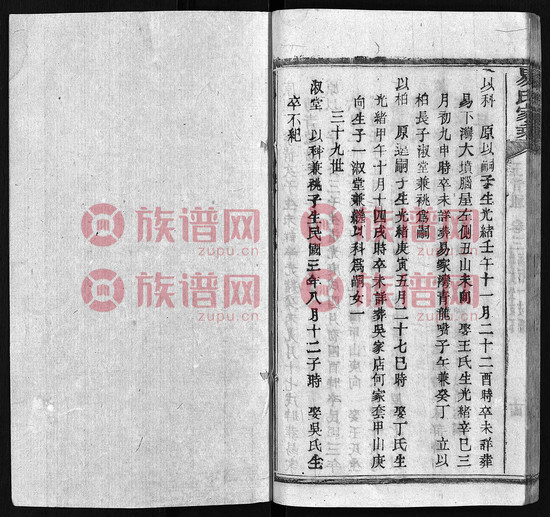 易氏家乘
以科 原以嗣子生光緒壬午十一月二十二酉時卒未詳葬
易下灣大墳腦屋左側丑山未向 娶王氏生光緒辛巳三
月初九申時卒未詳葬易家灣青龍嘴子午兼癸丁 立以
柏長子淑堂兼祧爲嗣
以柏 原 嗣子生光緒庚寅五月二十七巳時 娶丁氏生
光緒甲午十月十四戌時卒未詳葬吳家店何家套甲山庚
向生子一淑堂兼繼以科爲嗣女一
三十九世
淑堂 以科兼祧子生民國三年八月十二子時 娶吳氏生
卒不紀
族谱网
zupu.cn
族谱网
zupu.cn
族谱网
zupu.cn
族谱网
zupu.cn